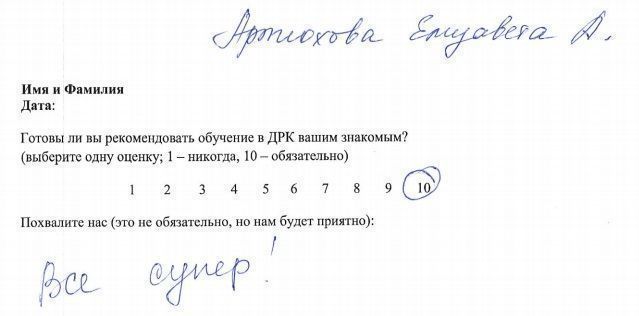 Артюхова Елизавета А.
Имя и Фамилия
Дата:
Готовы ли вы рекомендовать обучение в ДРК вашим знакомым?
(выберите одну оценку; 1 – никогда, 10 – обязательно)
1 2 3 4 5 6 7 8 9 10
Похвалите нас (это не обязательно, но нам будет приятно):
Все супер!